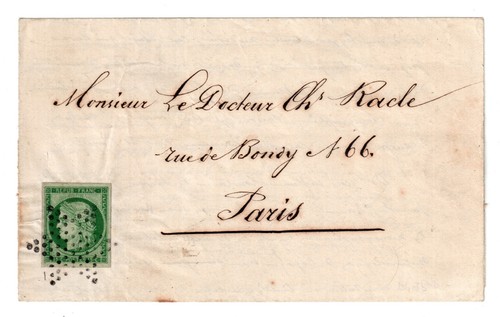 Monsieur Le Docteur Chˢ Racle
rue de Bondy N 66.
Paris
REPUB. FRANC.